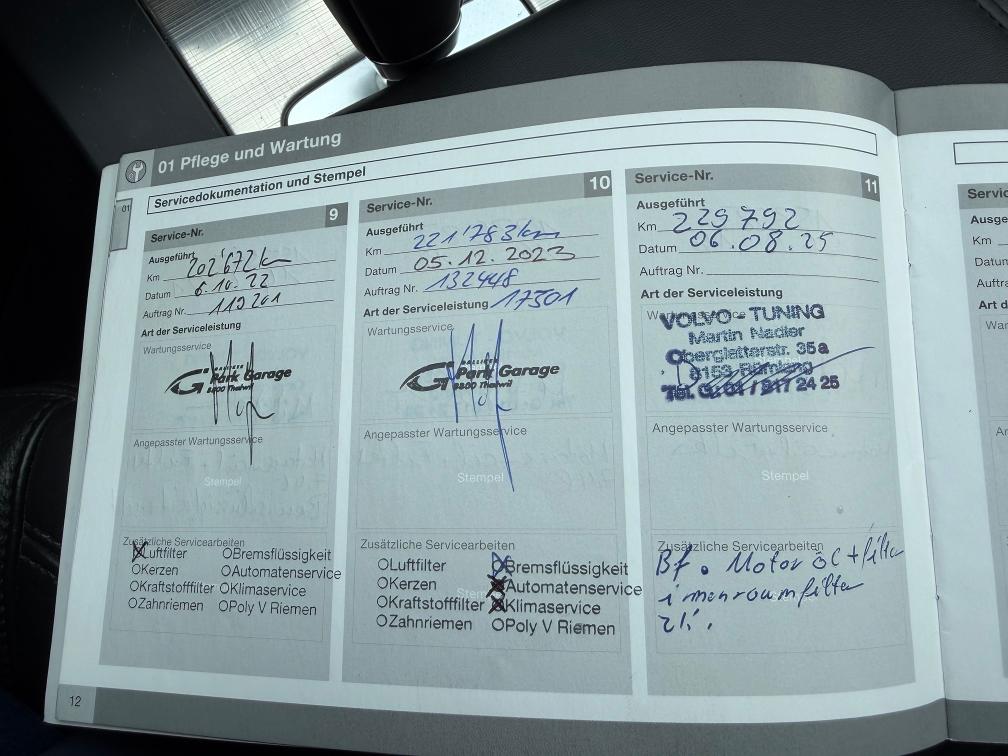 01 Pflege und Wartung
Servicedokumentation und Stempel
01
Service-Nr. 9
Ausgeführt
Km 202'672km
Datum 6.10.22
Auftrag Nr. 119201
Art der Serviceleistung
Wartungsservice
Park Garage
8800 Thalwil
Angepasster Wartungsservice
Stempel
Zusätzliche Servicearbeiten
Luftfilter OBremsflüssigkeit
OKerzen OAutomatenservice
OKraftstofffilter OKlimaservice
OZahnriemen OPoly V Riemen
12
Service-Nr. 10
Ausgeführt
Km 221'783km
Datum 05.12.2023
Auftrag Nr. 132448
Art der Serviceleistung 17501
Wartungsservice
Park Garage
8800 Thalwil
Angepasster Wartungsservice
Stempel
Zusätzliche Servicearbeiten
OLuftfilter Bremsflüssigkeit
OKerzen Automatenservice
OKraftstofffilter Klimaservice
OZahnriemen OPoly V Riemen
Service-Nr. 11
Ausgeführt
Km 229792
Datum 06.08.25
Auftrag Nr.
Art der Serviceleistung
Wartungsservice
VOLVO - TUNING
Martin Nadler
Oberglatterstr. 35a
8153 Rümlang
Angepasster Wartungsservice
Stempel
Zusätzliche Servicearbeiten
Bf. Motor öl + filter
innenraumfilter